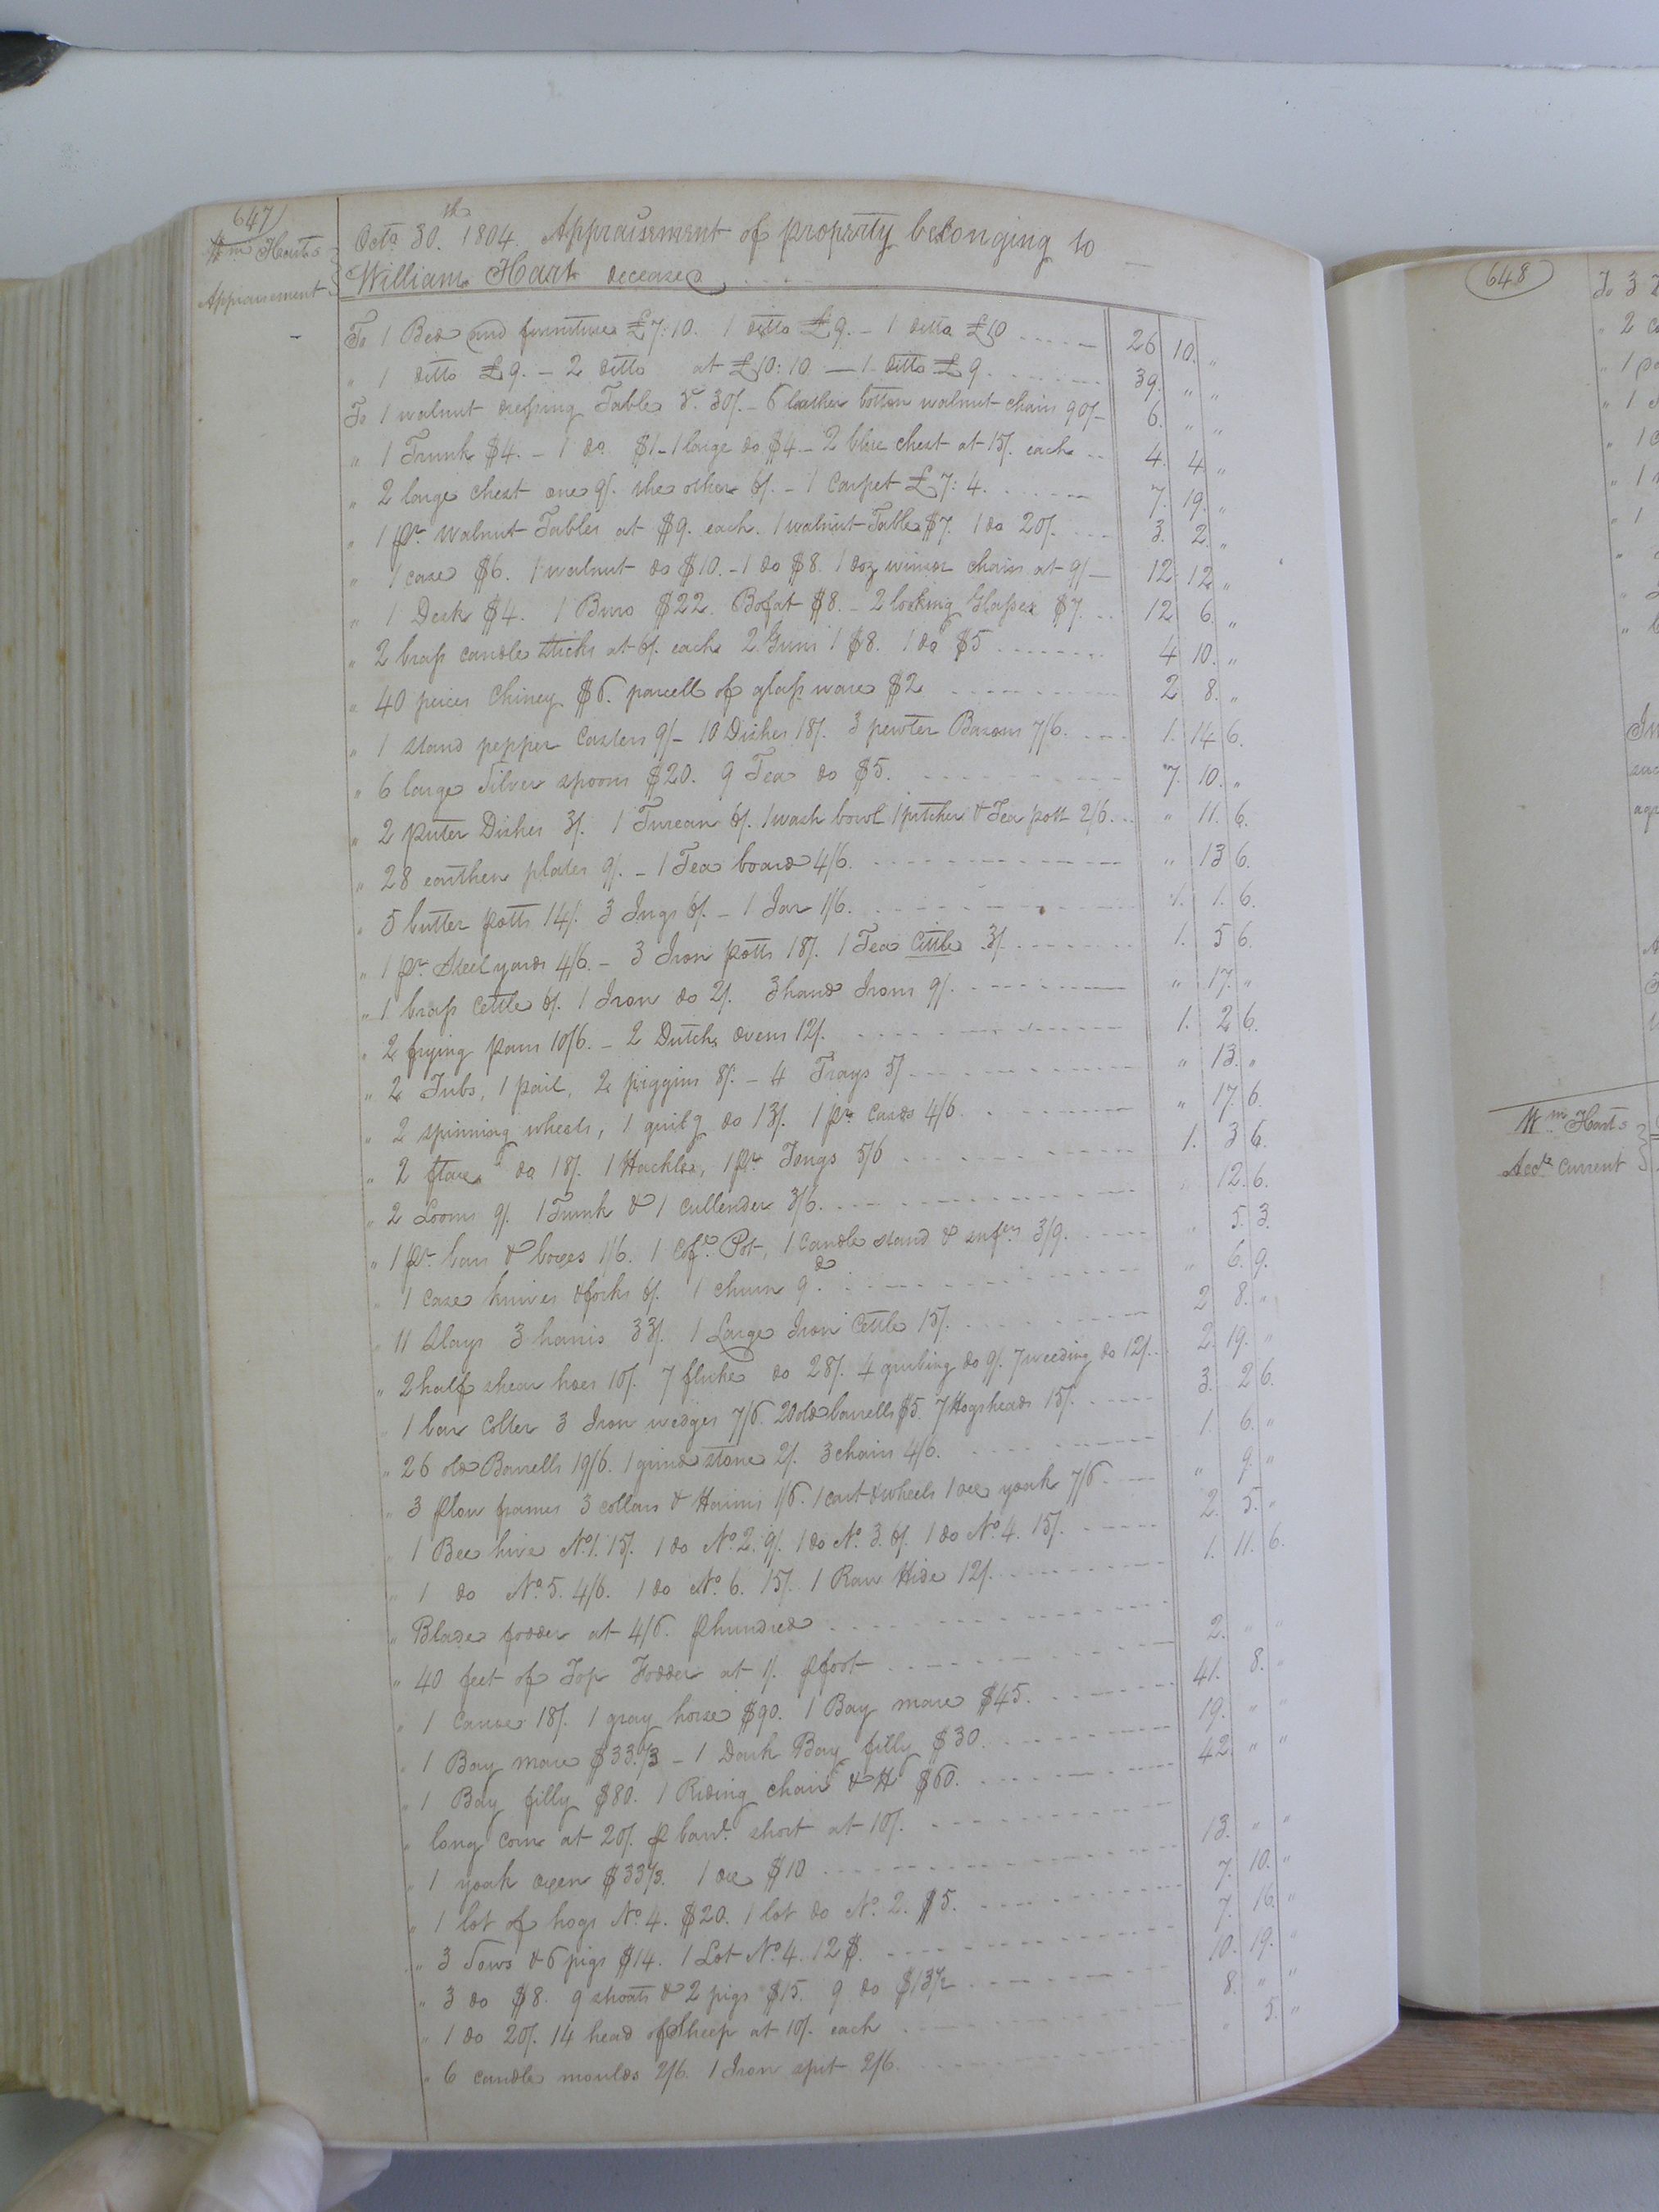 647
Wm Harts
Appraisement
Octo 30th 1804. Appraisement of property belonging to
William Hart deceased
To 1 Bed and furniture £7:10. 1 ditto £9. - 1 ditto £10 26 10. "
" 1 ditto £9. - 2 ditto at £10:10 - 1 ditto £9 39. " "
To 1 walnut dressing Table 30/. - 6 leather bottom walnut chairs 90/- 6. " "
" 1 Trunk $4. - 1 do $1 - 1 large do $4 - 2 blue chest at 15/. each 4. 4 "
" 2 large chest one 9/. the other 6/. - 1 Carpet £7:4. 7. 19. "
" 1 pr. Walnut Tables at $9. each. 1 walnut Table $7. 1 do 20/. 3. 2. "
" 1 case $6. 1 walnut do $10. - 1 do $8. 1 doz winsor chairs at 9/- 12 12 "
" 1 Desk $4. 1 Buro $22. Bofat $8. - 2 looking Glasses $7. 12 6. "
" 2 brass candle sticks at 6/. each 2 Guns 1 $8. 1 do $5 4 10. "
" 40 peices Chiney $6. parcell of glass ware $2 2 8. "
" 1 stand pepper Casters 9/- 10 Dishes 18/. 3 pewter Basons 7/6. 1. 14 6.
" 6 large Silver spoons $20. 9 Tea do $5. 7. 10. "
" 2 puter Dishes 3/. 1 Turean 6/. 1 wash bowl 1 pitcher & Tea pott 2/6. " 11. 6.
" 28 earthen plates 9/. - 1 Tea board 4/6. " 13 6.
" 5 butter potts 14/. 3 Jugs 6/. - 1 Jar 1/6. 1. 1. 6.
" 1 pr. Steelyards 4/6. - 3 Iron potts 18/. 1 Tea Cittle 3/. 1. 5 6.
" 1 brass Cettle 6/. 1 Iron do 2/. 3 hand Irons 9/. " 17. "
" 2 frying pans 10/6. - 2 Dutch ovens 12/. 1. 2 6.
" 2 Tubs, 1 pail, 2 piggins 8/. - 4 Trays 5/ " 13. "
" 2 spinning wheels, 1 quilg do 13/. 1 pr. cards 4/6. " 17. 6.
" 2 do 18/. 1 Hackle, 1 pr. Tongs 5/6 1. 3 6.
" 2 Looms 9/. 1 Trunk & 1 Cullender 3/6. " 12. 6.
" 1 pr. bars & boxes 1/6. 1 Pot, 1 Candle stand & 3/9. " 5. 3.
" 1 case knives & forks 6/. 1 churn 9d. " 6. 9.
" 11 Slays 3 harnis 33/. 1 Large Iron Cettle 15/. 2 8. "
" 2 half shear hoes 10/. 7 fluke do 28/. 4 grubing do 9/. 7 weeding do 12/. 2. 19. "
" 1 bar Colter 3 Iron wedges 7/6. 20 old barrells $5. 7 Hogsheads 15/. 3. 2 6.
" 26 old Barrells 19/6. 1 grind stone 2/. 3 chairs 4/6. 1. 6. "
" 3 Plow frames 3 collars & Haims 1/6. 1 cart & wheels 1 ox yoak 7/6. " 9. "
" 1 Bee hive No. 1. 15/. 1 do No. 2. 9/. 1 do No. 3. 6/. 1 do No. 4. 15/. 2. 5. "
" 1 do No. 5. 4/6. 1 do No. 6. 15/. 1 Raw Hide 12/. 1. 11. 6.
" Blade fodder at 4/6. P hundred
" 40 feet of Top Fodder at 1/. P foot 2. " "
" 1 Canoe 18/. 1 gray horse $90. 1 Bay mare $45. 41. 8. "
" 1 Bay mare $33.1/3 - 1 Dark Bay filly $30. 19. " "
" 1 Bay filly $80. 1 Riding chair & H $60. 42. " "
" long corn at 20/. P barl. short at 10/.
" 1 yoak oxen $33 1/3. 1 ox $10 13. " "
" 1 lot of hogs No. 4. $20. 1 lot do No. 2. $5. 7. 10. "
" 3 Sows & 6 pigs $14. 1 Lot No. 4. 12 $. 7. 16. "
" 3 do $8. 9 shoats & 2 pigs $15. 9 do $13 1/2 10. 19. "
" 1 do 20/. 14 head of Sheep at 10/. each 8. " "
" 6 candle moulds 2/6. 1 Iron spit 2/6. " 5. "
648
To 3
" 2
" 1
" 1
" 1
" 1
" 1
Wm Harts
Acct Current